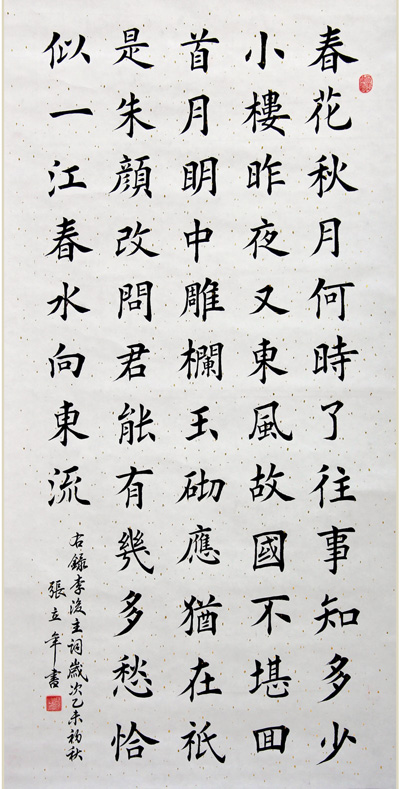 春花秋月何時了往事知多少
小樓昨夜又東風故國不堪回
首月明中雕欄玉砌應猶在祇
是朱顏改問君能有幾多愁恰
似一江春水向東流
右錄李後主詞歲次乙未初秋
張立年書